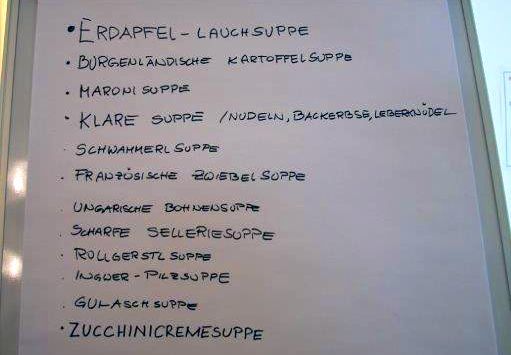 • ERDAPFEL - LAUCHSUPPE
• BURGENLÄNDISCHE KARTOFFELSUPPE
• MARONI SUPPE
• KLARE SUPPE /NUDELN, BACKERBSE, LEBERKNÖDEL
• SCHWAMMERL SUPPE
• FRANZÖSISCHE ZWIEBELSUPPE
UNGARISCHE BOHNENSUPPE
• SCHARFE SELLERIESUPPE
• ROLLGERSTLSUPPE
• INGWER - PILZSUPPE
• GULASCHSUPPE
• ZUCCHINICREMESUPPE